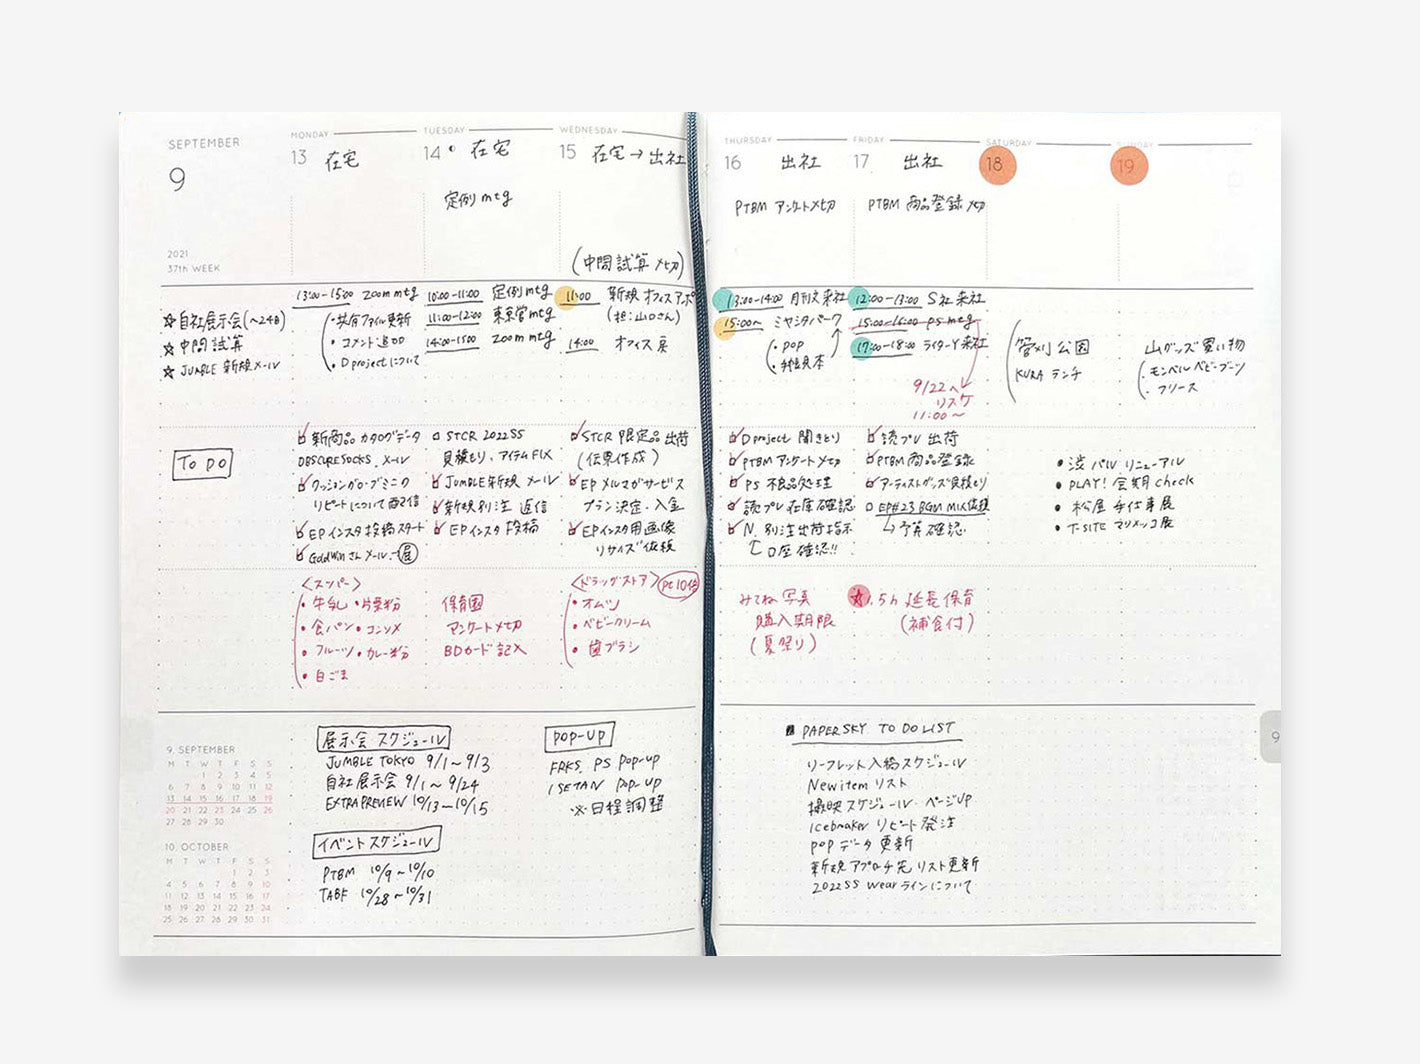 SEPTEMBER
9
2021
37th WEEK
☆自社展示会(~24日)
☆中間試算
☆JUMBLE 新規メール
To Do
MONDAY
13 在宅
13:00-15:00 zoom mtg
・共有ファイル更新
・コメント追加
・D projectについて
新商品 カタログデータ
OBSCURE SOCKS. メール
クッショングローブミニク
リピートについて配信
EPインスタ投稿スタート
Goldwinさんメール→展
<スーパー>
・牛乳 ・片栗粉
・食パン・コンソメ
・フルーツ・カレー粉
・白ごま
TUESDAY
14 在宅
定例mtg
10:00-11:00 定例mtg
11:00-12:00 東京営mtg
14:00-15:00 zoom mtg
STCR 2022SS
見積もり、アイテムFIX
JUMBLE新規メール
新規別注 返信
EPインスタ投稿
保育園
アンケート〆切
BDカード記入
WEDNESDAY
15 在宅→出社
(中間試算〆切)
11:00 新規オフィスアポ
(担:山口さん)
14:00 オフィス戻
STCR 限定品出荷
(伝票作成)
EPメルマガサービス
プラン決定・入金
EPインスタ用画像
リサイズ依頼
<ドラッグストア> pt10倍
・オムツ
・ベビークリーム
・歯ブラシ
THURSDAY
16 出社
PTBM アンケート〆切
13:00-14:00 月刊文来社
15:00~ ミヤシタパーク
・POP
・見本
D project 聞きとり
PTBMアンケート〆切
PS 不良品処理
読プレ在庫確認
N. 別注出荷指示
口座確認!!
みてね写真
購入期限
(夏祭り)
FRIDAY
17 出社
PTBM 商品登録〆切
12:00-13:00 S社来社
15:00-16:00 PS mtg
17:00-18:00 ライターY来社
9/22へ
リスケ
11:00~
読プレ出荷
PTBM商品登録
アーティストグッズ見積もり
EP#23 BGM MIX依頼
予算確認
☆1.5h 延長保育
(補食付)
SATURDAY
18
菅刈公園
KURA ランチ
SUNDAY
19
山グッズ買い物
・モンベル ベビーブーツ
・フリース
・渋パル リニューアル
・PLAY! 会期check
・松屋 手仕事展
・T-SITE マリメッコ展
9. SEPTEMBER
M T W T F S S
1 2 3 4 5
6 7 8 9 10 11 12
13 14 15 16 17 18 19
20 21 22 23 24 25 26
27 28 29 30
10. OCTOBER
M T W T F S S
1 2 3
4 5 6 7 8 9 10
11 12 13 14 15 16 17
18 19 20 21 22 23 24
25 26 27 28 29 30 31
展示会 スケジュール
JUMBLE TOKYO 9/1~9/3
自社展示会 9/1~9/24
EXTRAPREVIEW 10/13~10/15
イベントスケジュール
PTBM 10/9~10/10
TABF 10/28~10/31
POP-UP
FRKS. PS POP-UP
ISETAN POP-UP
※日程調整
■ PAPERSKY TO DO LIST
リーフレット入稿スケジュール
New item リスト
撮映スケジュール・ページUP
Icebreaker リピート発注
POPデータ更新
新規アプローチ先リスト更新
2022SS wearラインについて
9